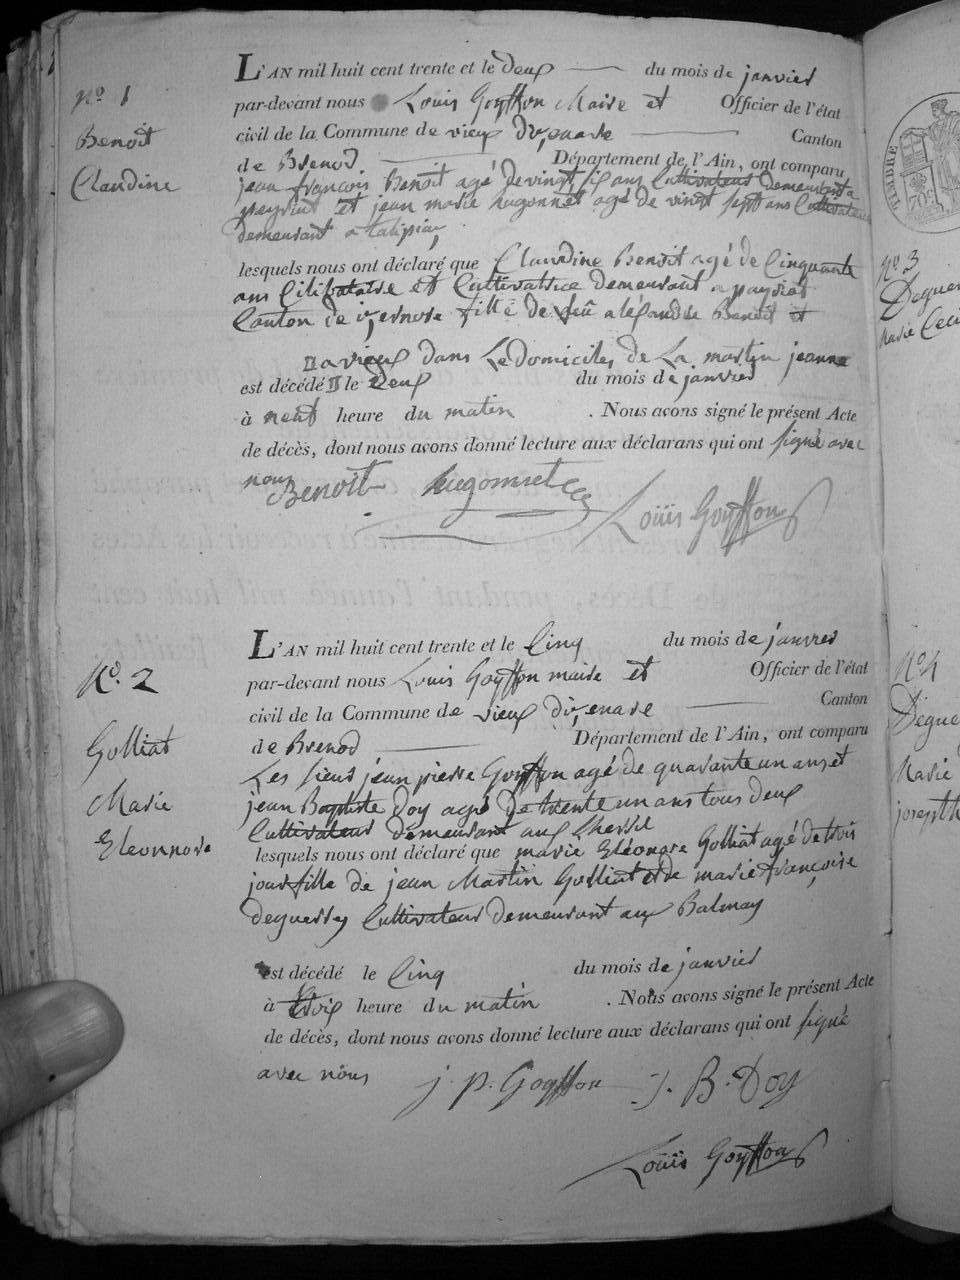 N.o 1
Benoit
Claudine
L'AN mil huit cent trente et le deux du mois de janvier
par-devant nous Louis Goyffon Maire et Officier de l'état
civil de la Commune de vieux d'yzenave Canton
de Brenod Département de l'Ain, ont comparu
jean françois Benoit agé de vingt six ans Cultivateur demeurant a
peyriat et jean marie hugonnet agé de vingt sept ans Cultivateur
demeurant a
lesquels nous ont déclaré que Claudine Benoit agé de Cinquante
ans Celibataire et Cultivatrice demeurant a peyriat
Canton de fille de feû Benoit et
a vieux dans Le domiciles de La martin jeanne
est décédé le Deux du mois de janvier
à neuf heure du matin . Nous avons signé le présent Acte
de décès, dont nous avons donné lecture aux déclarans qui ont signé avec
nous Benoit hugonnet Louis Goyffon
N.o 2
Golliat
Marie
Eleonnore
L'AN mil huit cent trente et le Cinq du mois de janvier
par-devant nous Louis Goyffon maire et Officier de l'état
civil de la Commune de vieux d'yzenave Canton
de Brenod Département de l'Ain, ont comparu
Les sieus jean pierre Goyffon agé de quarante un ans et
jean Baptiste Doy agé de trente un ans tous deux
Cultivateur demeurant aux
lesquels nous ont déclaré que marie Eléonore Golliat agé de trois
jour fille de jean Martin Golliat et de marie françoise
deguerry Cultivateur demeurant aux Balmay
est décédé le Cinq du mois de janvier
à trois heure du matin . Nous avons signé le présent Acte
de décès, dont nous avons donné lecture aux déclarans qui ont signé
avec nous j. p. Goyffon J. B. Doy
Louis Goyffon
TIMBRE
70
N.o 3
Deguer
Marie Ceci
N.o 4
Degue
Marie
joseph